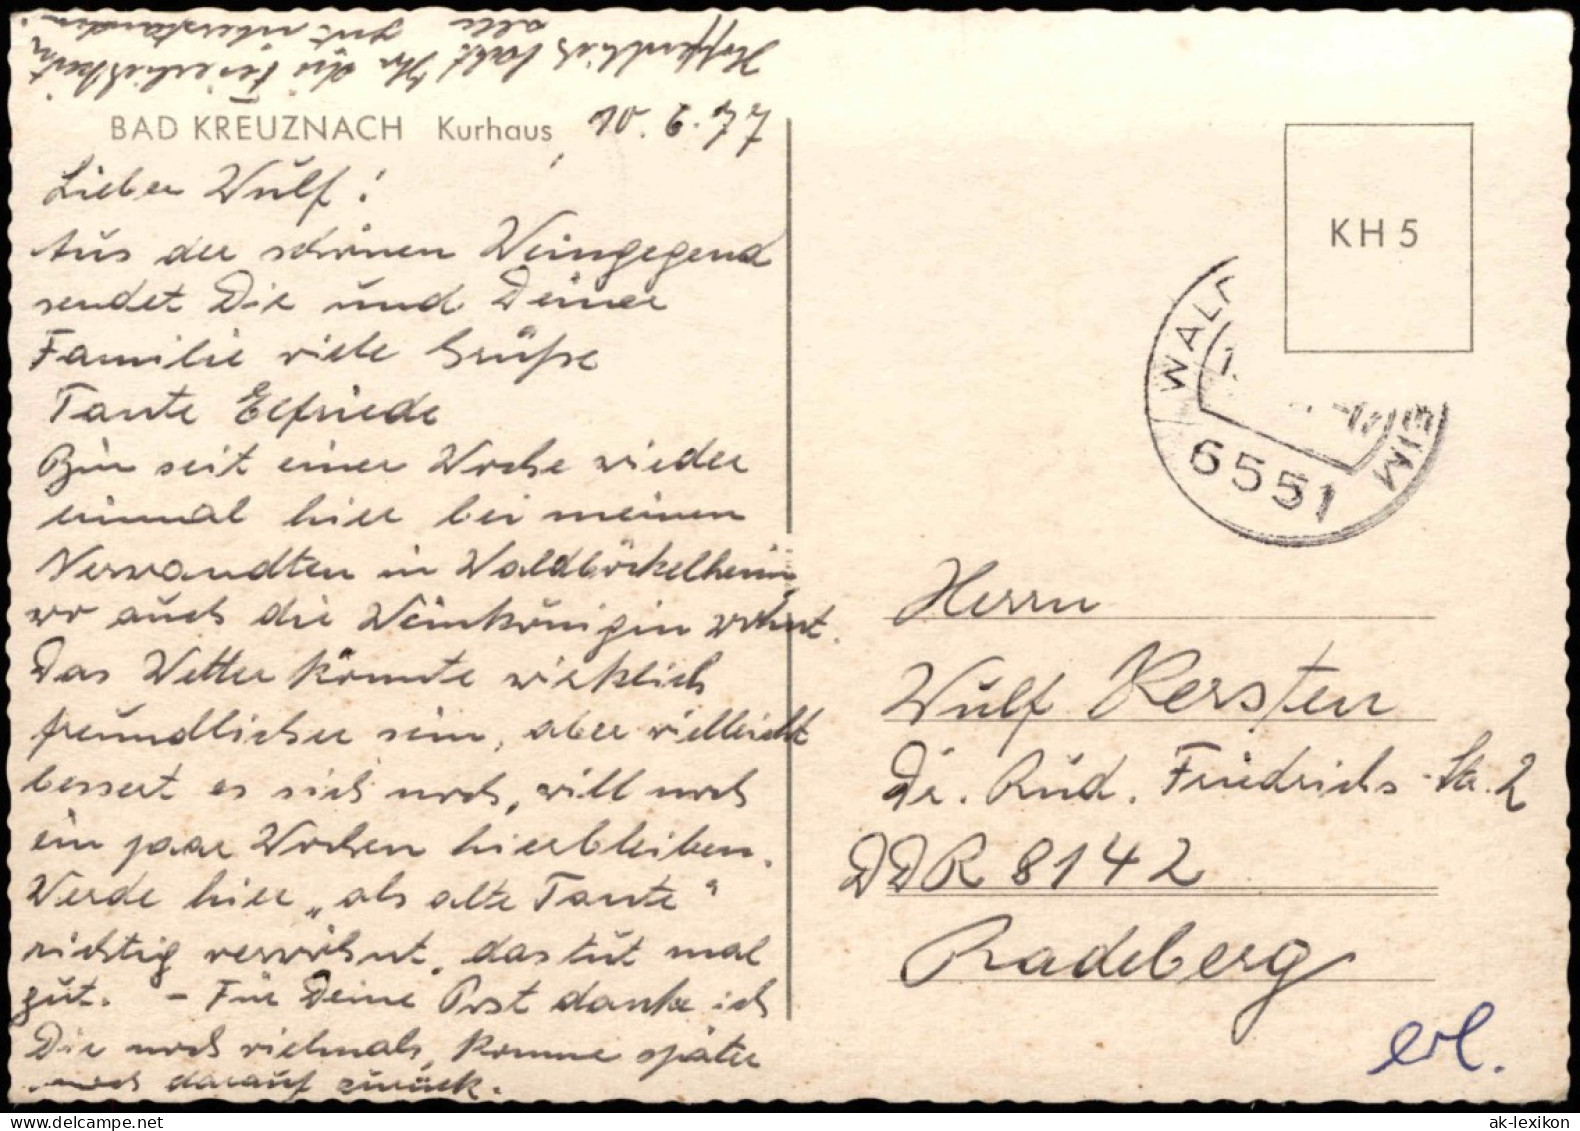 BAD KREUZNACH Kurhaus
10.6.77
Lieber Wulf!
Aus der schönen Weingegend
sendet Dir und Deiner
Familie viele Grüße
Tante Elfriede
Bin seit einer Woche wieder
einmal hier bei meinen
Verwandten in Waldböckelheim,
wo auch die Weinkönigin wohnt.
Das Wetter könnte wirklich
freundlicher sein, aber vielleicht
bessert es sich noch, will noch
ein paar Wochen hierbleiben.
Werde hier „als alte Tante"
richtig verwöhnt, das tut mal
gut. – Für Deine Post danke ich
Dir noch vielmals, komme später
noch darauf zurück.
Hoffentlich habt Ihr die Feierlichkeiten
alle gut überstanden.
KH 5
6551
Herrn
Wulf Kersten
Dr. Rud. Friedrichs-Str. 2
DDR 8142
Radeberg
erl.
ak-lexikon